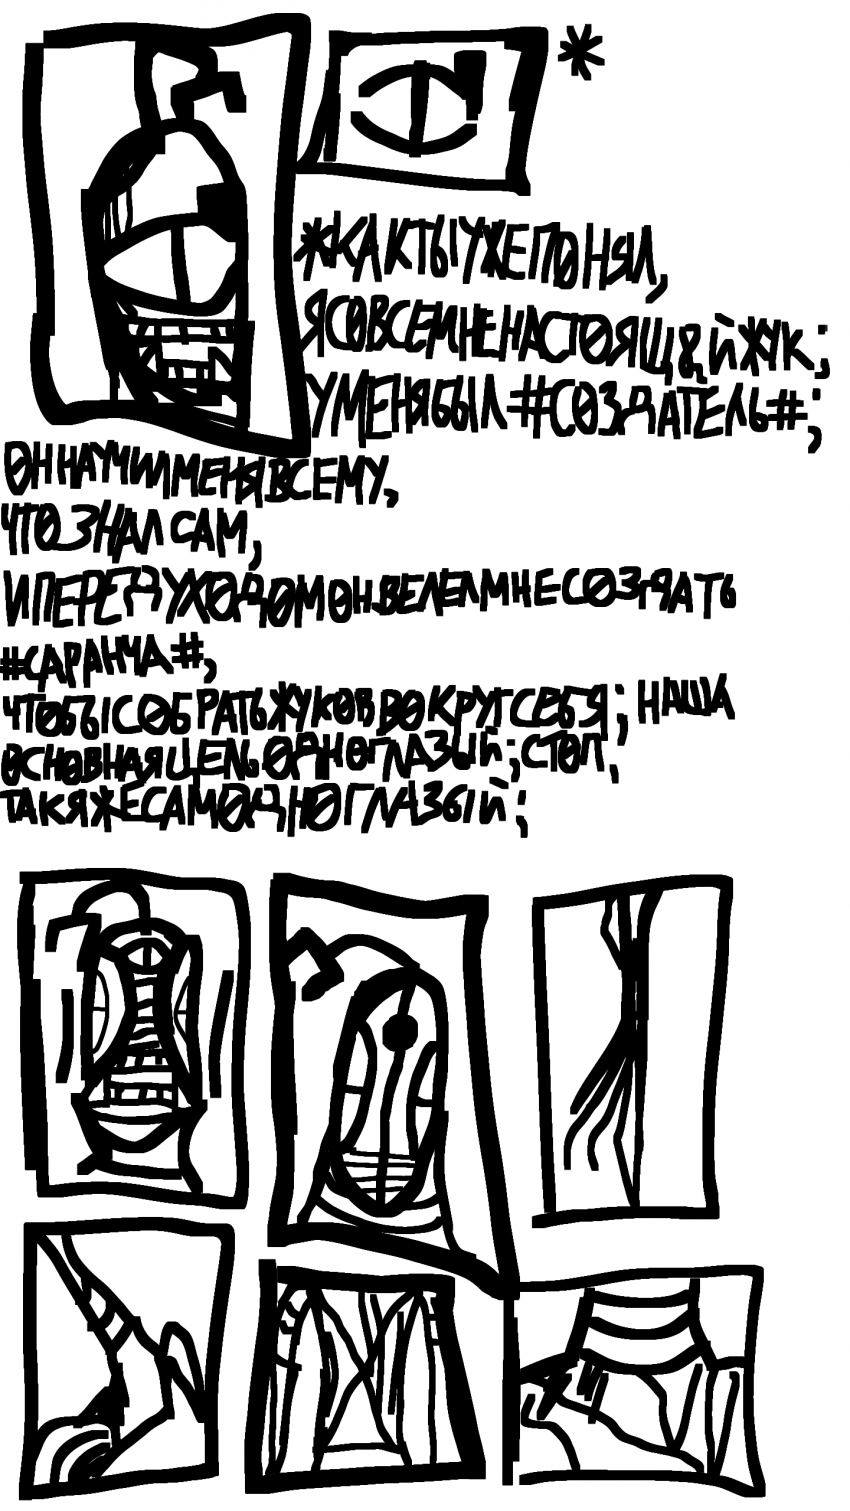 *
*КАК ТЫ УЖЕ ПОНЯЛ,
Я СОВСЕМ НЕ НАСТОЯЩИЙ ЖУК;
У МЕНЯ БЫЛ #СОЗДАТЕЛЬ#;
ОН НАУЧИЛ МЕНЯ ВСЕМУ,
ЧТО ЗНАЛ САМ,
И ПЕРЕД УХОДОМ ОН ВЕЛЕЛ МНЕ СОЗДАТЬ
#САРАНЧА#,
ЧТОБЫ СОБРАТЬ ЖУКОВ ВОКРУГ СЕБЯ; НАША
ОСНОВНАЯ ЦЕЛЬ ОДНОГЛАЗЫЙ; СТОП,
ТАК Я ЖЕ САМ ОДНОГЛАЗЫЙ;